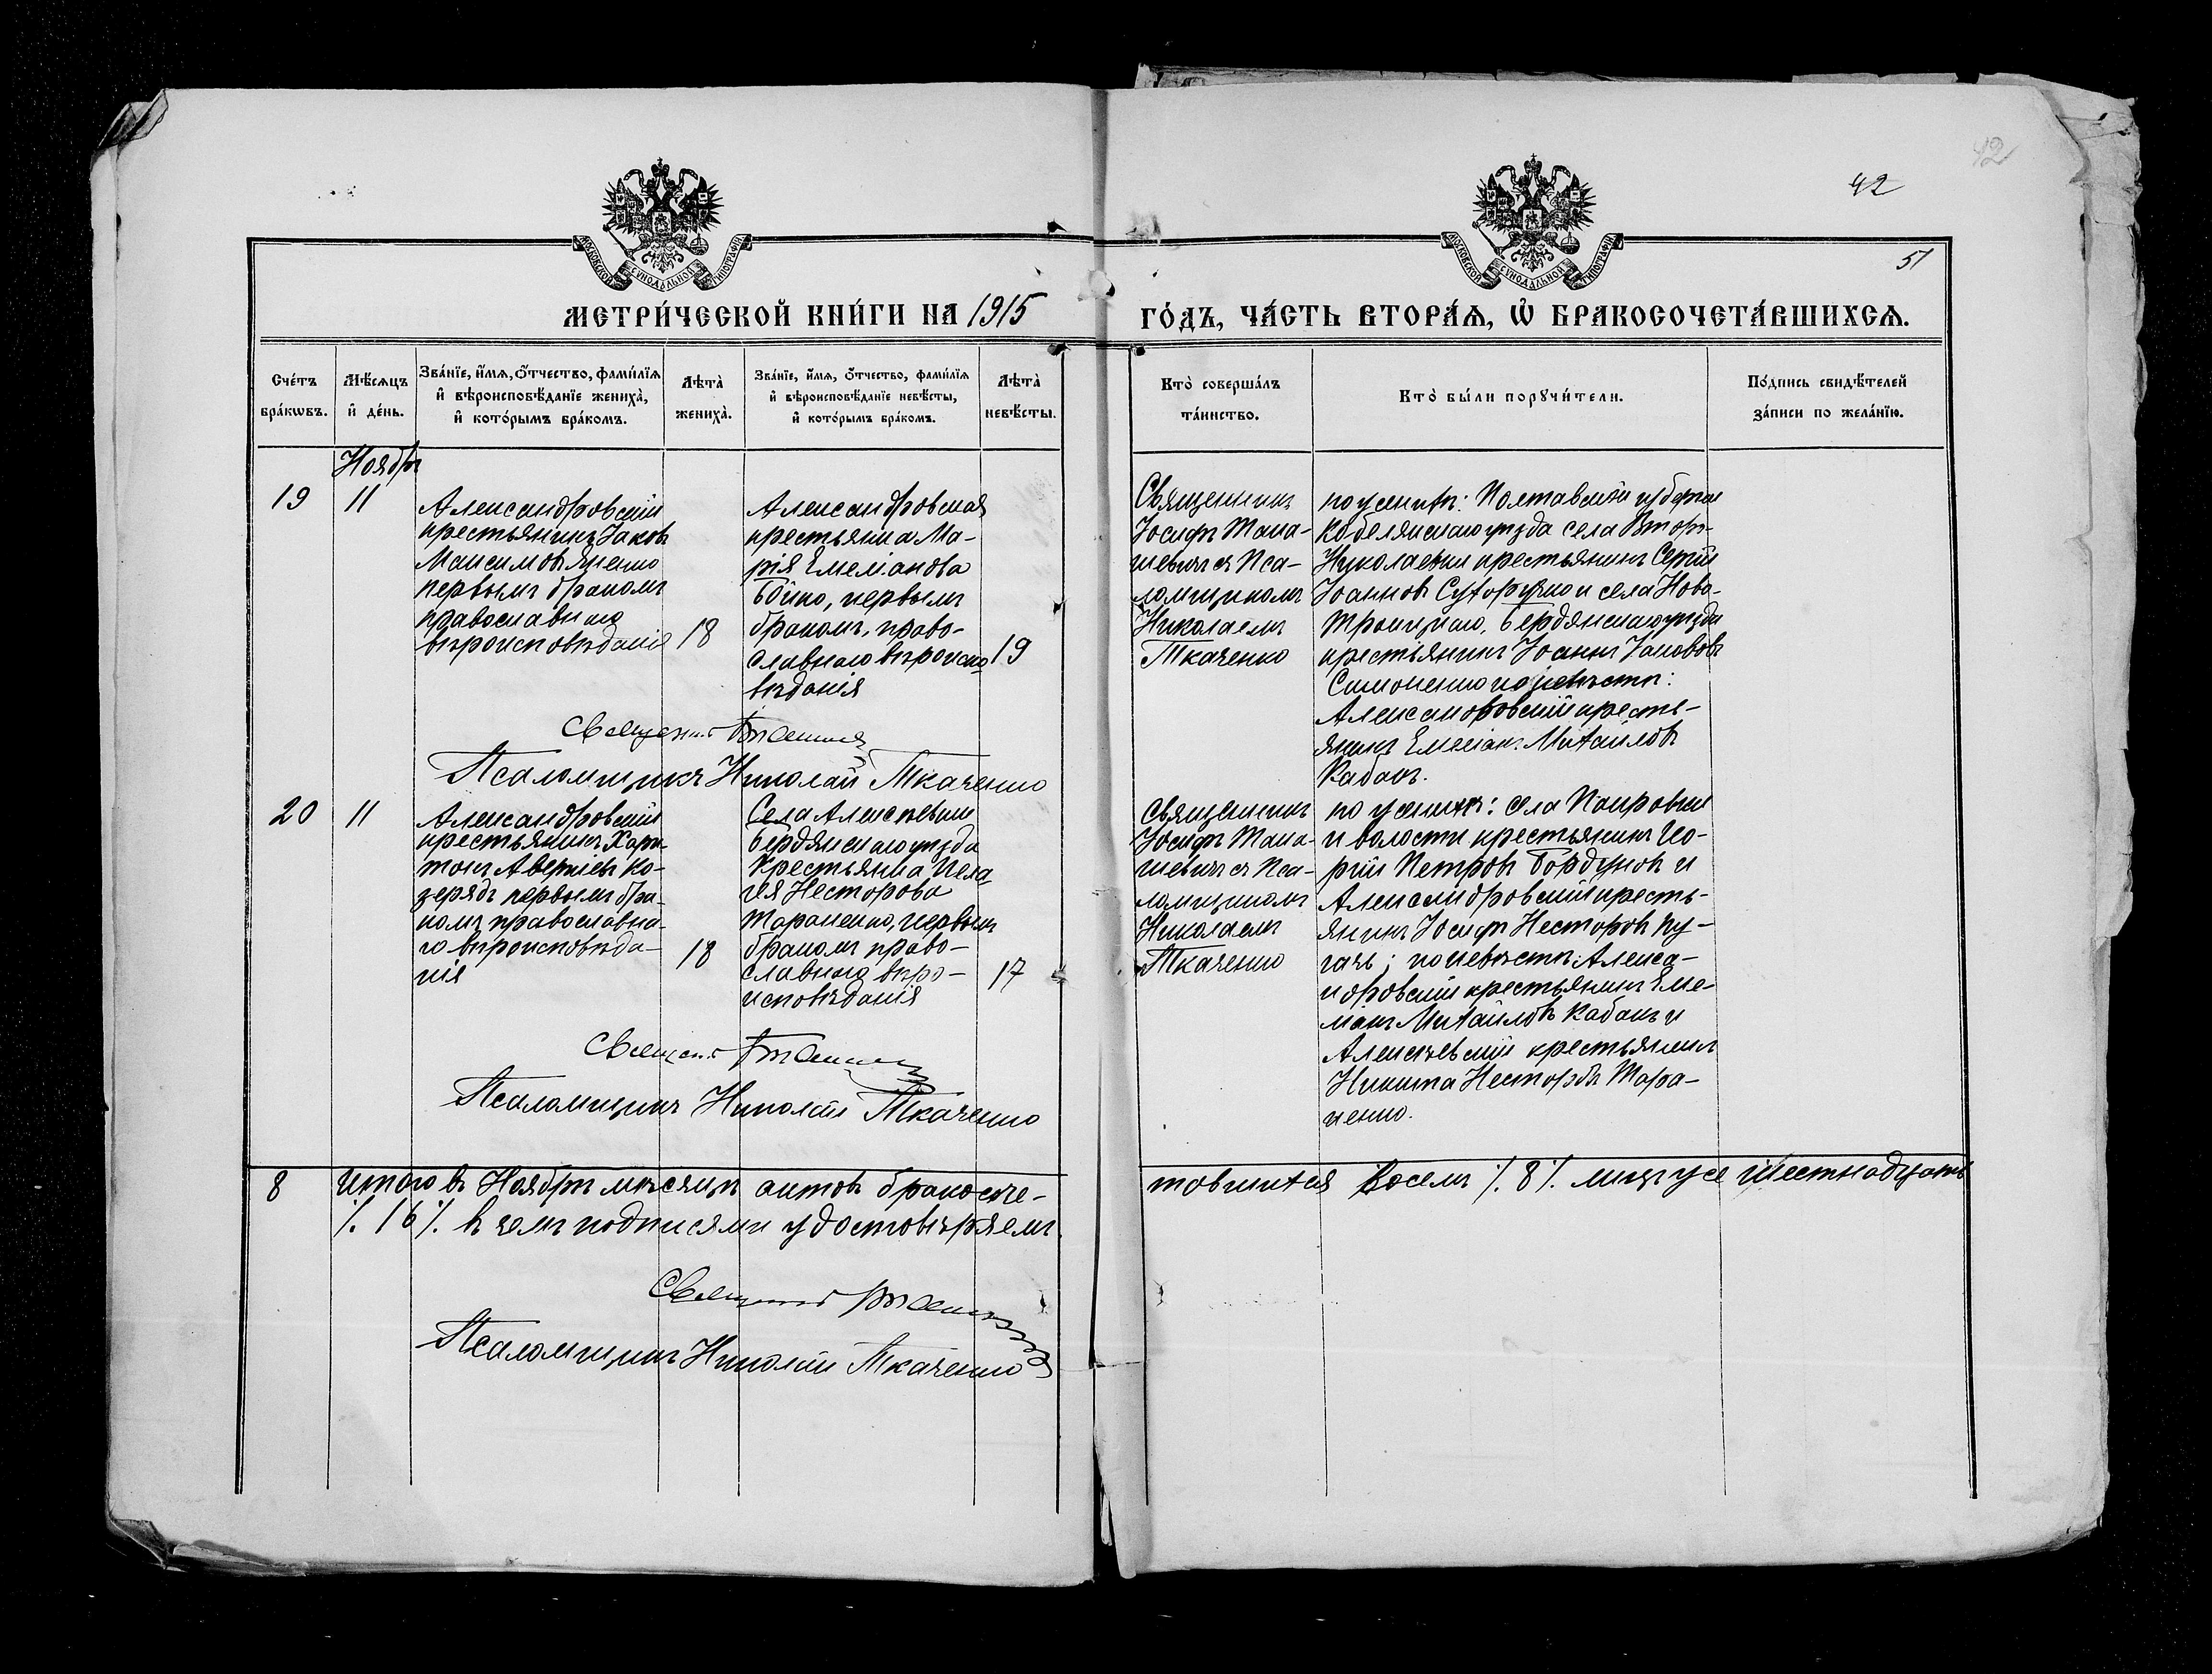 42
42
51
МОСКОВСКОЙ СѴНОДАЛЬНОЙ ТИПОГРАФІИ
МОСКОВСКОЙ СѴНОДАЛЬНОЙ ТИПОГРАФІИ
МЕТРИ́ЧЕСКОЙ КНИ́ГИ НА 1915
ГО́ДЪ, ЧА́СТЬ ВТОРА́Ѧ, Ѡ҆ БРАКОСОЧЕТА́ВШИХСѦ.
Сче́тъ
бра́кѡвъ.
Мѣ́сѧцъ
и҆ де́нь.
Зва́нїе, и҆́мѧ, ѻ҆́тчество, фами́лїѧ
и҆ вѣроисповѣ́данїе жениха̀,
и҆ кото́рымъ бра́комъ.
Лѣта̀
жениха̀.
Зва́нїе, и҆́мѧ, ѻ҆́тчество, фами́лїѧ
и҆ вѣроисповѣ́данїе невѣ́сты,
и҆ кото́рымъ бра́комъ.
Лѣта̀
невѣ́сты.
Кто̀ соверша́лъ
та́инство.
Кто̀ бы́ли порꙋчи́тели.
По́дпись свидѣ́телей
за́писи по жела́нїю.
Ноябр
19
11
Александровскій
крестьянинъ Іаковъ
Максимовъ Яценко
первымъ бракомъ
православнаго
вѣроисповѣданія
18
Александровская
крестьянка Ма-
рія Емеліанова
Бойко, первымъ
бракомъ, право-
славнаго вѣроиспо
вѣданія
19
Священникъ
Іосифъ Мана-
шевичъ съ Пса-
ломщикомъ
Николаемъ
Ткаченко
по женихѣ: Полтавской губерніи
Кобелякскаго уѣзда села Втор-
Николаевки крестьянинъ Сергій
Іоанновъ и села Ново-
Троицкаго, Бердянскаго уѣзда
крестьянинъ Іоаннъ Іаковъ
Симоненко по невѣстѣ:
Александровскій кресть-
янинъ Емеліанъ Михаиловъ
Кабакъ.
Священникъ
Псаломщикъ Николай Ткаченко
20
11
Александровскій
крестьянинъ Хари-
тонъ Аверкіевъ Ко-
зерядъ первымъ бра-
комъ православна-
го вѣроисповѣда-
нія
18
Села Алексѣевки
Бердянскаго уѣзда
крестьянка Пела-
гея Несторова
Тараненко, первымъ
бракомъ право-
славнаго вѣро-
исповѣданія
17
Священникъ
Іосифъ Мана-
шевичъ съ Пса-
ломщикомъ
Николаемъ
Ткаченко
по женихѣ: села Покровки
и волости крестьянинъ Ге-
ргій Петровъ Бордуновъ и
Александровскій кресть-
янинъ Іосифъ Несторовъ Пу-
гачъ; по невѣстѣ: Алекса-
ндровскій крестьянинъ Еме-
ліанъ Михаиловъ Кабакъ и
Алексѣевскій крестьянинъ
Никита Несторовъ Тара-
ненко.
Священникъ
Псаломщикъ Николай Ткаченко
8
Итого въ Ноябрѣ мѣсяцѣ актовъ бракосоче-
тавшихся восемь ٪ 8 ٪ лицъ уже шестнадцать
٪ 16 ٪ въ чемъ подписями удостовѣряемъ.
Священникъ
Псаломщикъ Николай Ткаченко